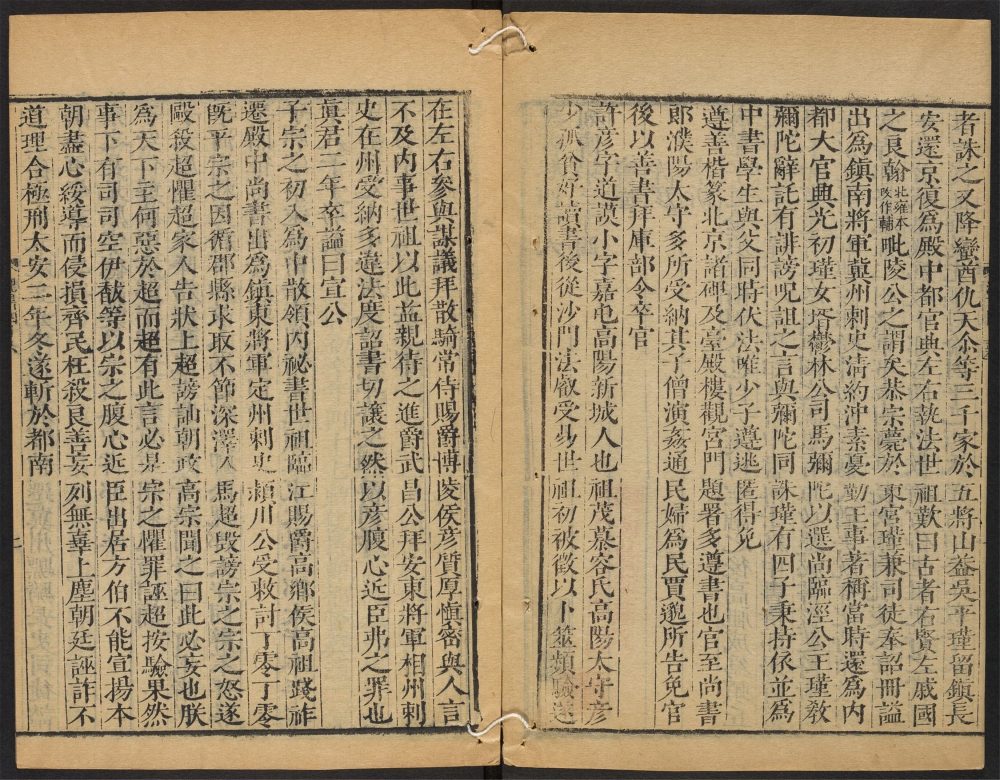 者誅之又降蠻酋仇天尒等三千家於五將山蓋吳平瑾留鎮長
安還京復為殿中都官典左右執法世祖歎曰古者右賢左戚國
之良翰北雍本改作輔毗陵公之謂矣恭宗薨於東宮瑾兼司徒奉詔冊謚
出為鎮南將軍冀州刺史清約沖素憂勤王事著稱當時還為內
都大官典光初瑾女壻鬱林公司馬彌陀以選尚臨涇公主瑾敎
彌陀辭託有誹謗呪詛之言與彌陀同誅瑾有四子秉持依並為
中書學生與父同時伏法唯少子遵逃匿得免
遵善楷篆北京諸碑及臺殿樓觀宮門題署多遵書也官至尚書
郎濮陽太守多所受納其子僧演姦通民婦為民賈邈所告免官
後以善書拜庫部令卒官
許彥字道謨小字嘉屯高陽新城人也祖茂慕容氏高陽太守彥
少孤貧好讀書後從沙門法叡受易世祖初被徵以卜筮頻驗遂
在左右參與謀議拜散騎常侍賜爵博陵侯彥質厚慎密與人言
不及內事世祖以此益親待之進爵武昌公拜安東將軍相州刺
史在州受納多違法度詔書切讓之然以彥腹心近臣弗之罪也
眞君二年卒謚曰宣公
子宗之初入為中散領內秘書世祖臨江賜爵高鄉侯高祖踐祚
遷殿中尚書出為鎮東將軍定州刺史潁川公受敕討丁零丁零
旣平宗之因循郡縣求取不節深澤人馬超毀謗宗之宗之怒遂
毆殺超懼超家人告狀上超謗訕朝政高宗聞之曰此必妄也朕
為天下主何惡於超而超有此言必是宗之懼罪誣超按驗果然
事下有司司空伊馛等以宗之腹心近臣出居方伯不能宣揚本
朝盡心綏導而侵損齊民枉殺良善妄列無辜上塵朝廷誣詐不
道理合極刑太安二年冬遂斬於都南